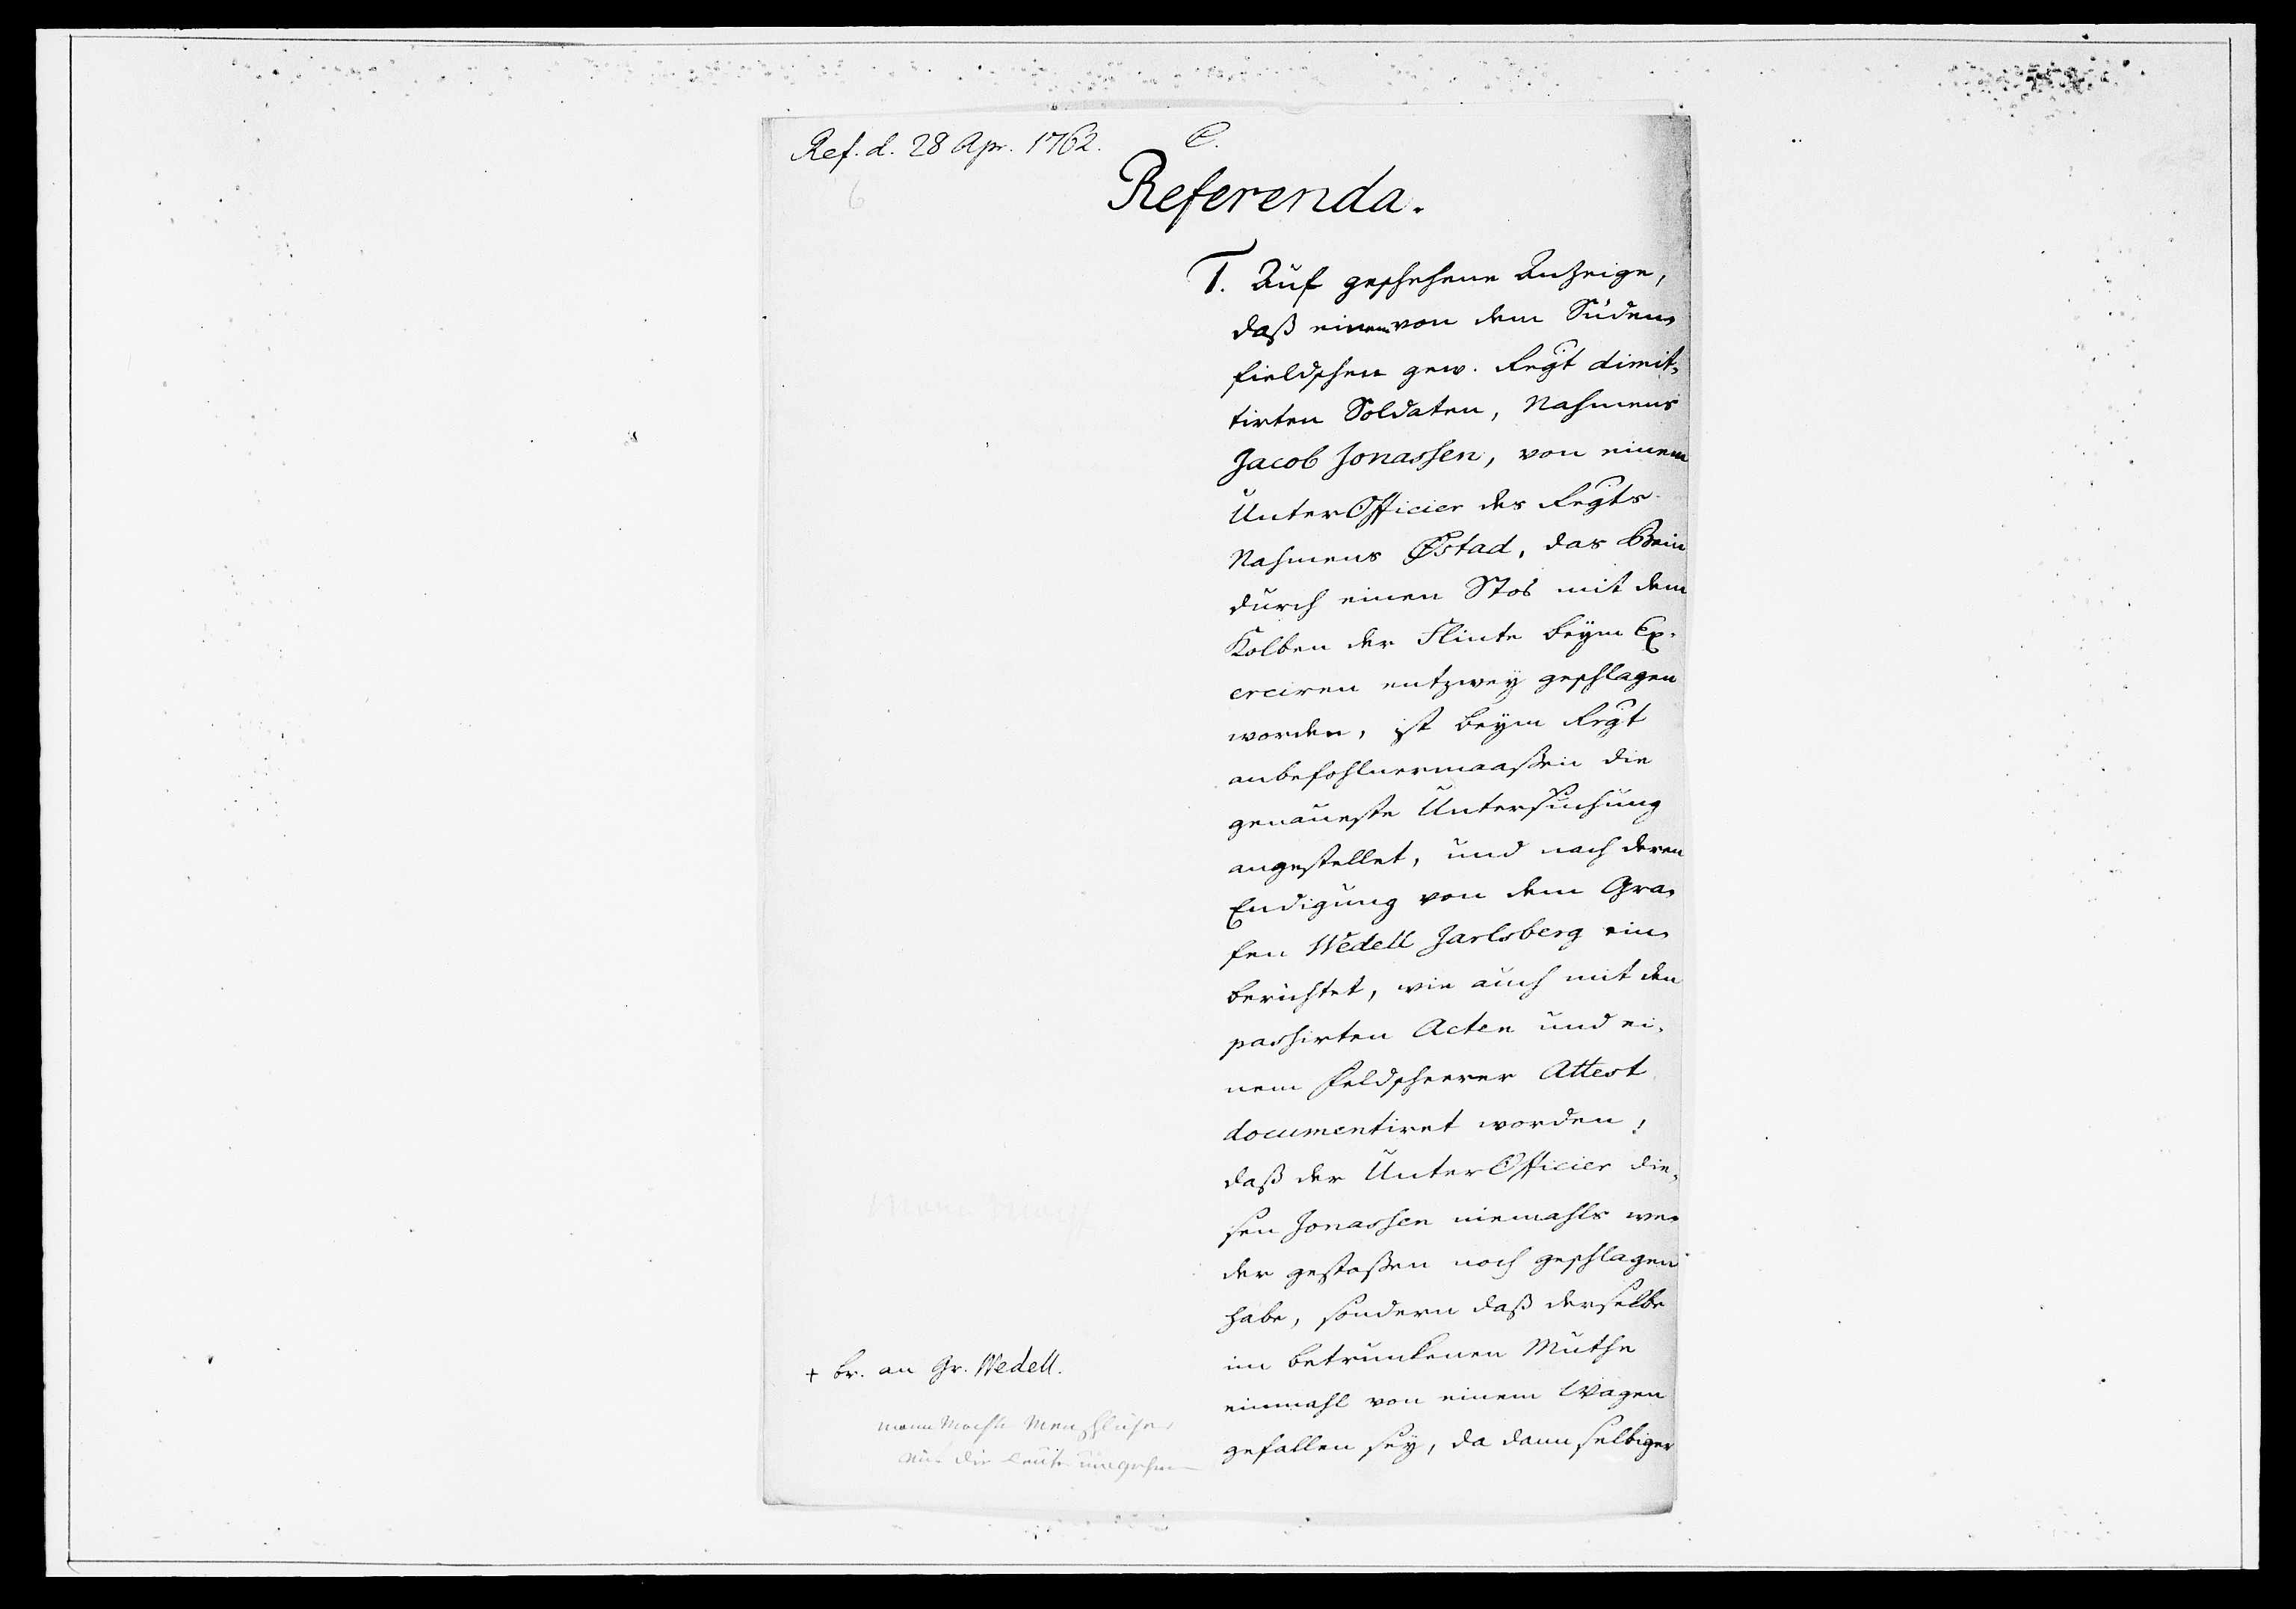 Ref. d. 28 Apr. 1762. C.
6
Referenda.
1. Auf geschehene Anzeige,
daß einem von dem Süden,
fieldschen gew. Regt dimit,
tirten Soldaten, Nahmens
Jacob Jonassen, von einem
UnterOfficier des Regts
Nahmens Østad, das Bein
durch einen Stos mit dem
Kolben der Flinte beym Ex,
erciren entzwey geschlagen
worden, ist beym Regt
anbefohlnermaaßen die
genaueste Untersuchung
angestellet, und nach deren
Endigung von dem Gra,
fen Wedell Jarlsberg ein,
berichtet, wie auch mit den
passirten Acten und ei,
nem Feldscheerer Attest
documentiret worden,
daß der UnterOfficier die,
sen Jonassen niemahls we,
der gestoßen noch geschlagen
habe, sondern daß derselbe
im betrunkenen Muthe
einmahl von einem Wagen
gefallen sey, da dann selbiger
+ br. an Gr. Wedell.
die Leute